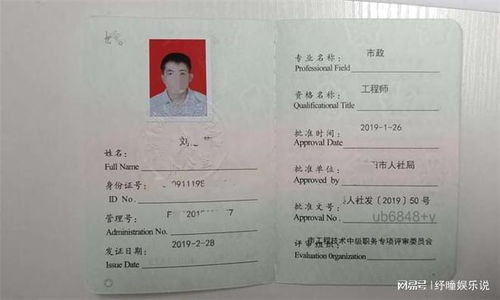 姓名：
刘
Full Name
身份证号：
0911195
ID No.
管理号：
Administration No.
发证日期：
2019-2-28
Issue Date
专业名称：
市政
Professional Field
资格名称：
工程师
Qualificational Title
批准时间：
2019-1-26
Approval Date
批准单位：
市人社局
Approved by
批准文号：
人社发［2019］50号
Approval No.
ub6848+v
评审组织：
市工程技术中级职务专项评审委员会
Evaluation Organization
搜狐号@纾曈娱乐说